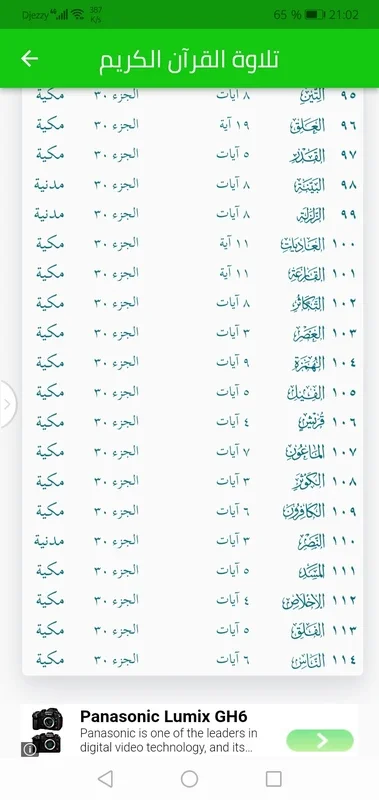 Djezzy 4G 397 K/s 65 % 21:02
تلاوة القرآن الكريم
٩٥ التين ٨ آيات الجزء ٣٠ مكية
٩٦ العلق ١٩ آية الجزء ٣٠ مكية
٩٧ القدر ٥ آيات الجزء ٣٠ مكية
٩٨ البينة ٨ آيات الجزء ٣٠ مدنية
٩٩ الزلزلة ٨ آيات الجزء ٣٠ مدنية
١٠٠ العاديات ١١ آية الجزء ٣٠ مكية
١٠١ القارعة ١١ آية الجزء ٣٠ مكية
١٠٢ التكاثر ٨ آيات الجزء ٣٠ مكية
١٠٣ العصر ٣ آيات الجزء ٣٠ مكية
١٠٤ الهمزة ٩ آيات الجزء ٣٠ مكية
١٠٥ الفيل ٥ آيات الجزء ٣٠ مكية
١٠٦ قريش ٤ آيات الجزء ٣٠ مكية
١٠٧ الماعون ٧ آيات الجزء ٣٠ مكية
١٠٨ الكوثر ٣ آيات الجزء ٣٠ مكية
١٠٩ الكافرون ٦ آيات الجزء ٣٠ مكية
١١٠ النصر ٣ آيات الجزء ٣٠ مدنية
١١١ المسد ٥ آيات الجزء ٣٠ مكية
١١٢ الإخلاص ٤ آيات الجزء ٣٠ مكية
١١٣ الفلق ٥ آيات الجزء ٣٠ مكية
١١٤ الناس ٦ آيات الجزء ٣٠ مكية
Panasonic Lumix GH6
Panasonic is one of the leaders in
digital video technology, and its...